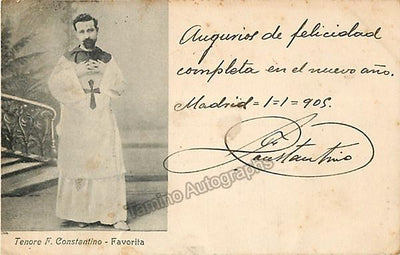 Augurios de felicidad
completa en el nuevo año.
Madrid = 1 = 1 = 905.
F. Constantino
Tamino Autographs
Tenore F. Constantino - Favorita